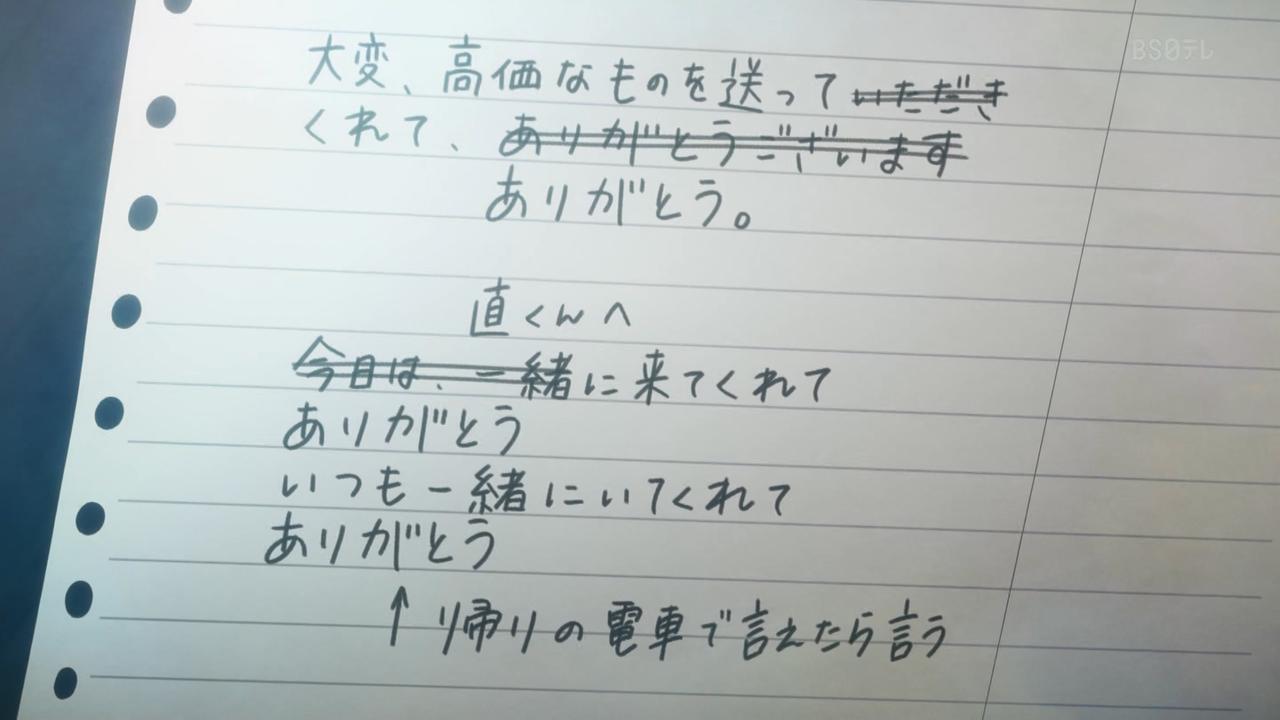 BS日テレ
大変、高価なものを送っていただき
くれて、ありがとうございます
ありがとう。
直くんへ
今日は、一緒に来てくれて
ありがとう
いつも一緒にいてくれて
ありがとう
↑帰りの電車で言えたら言う